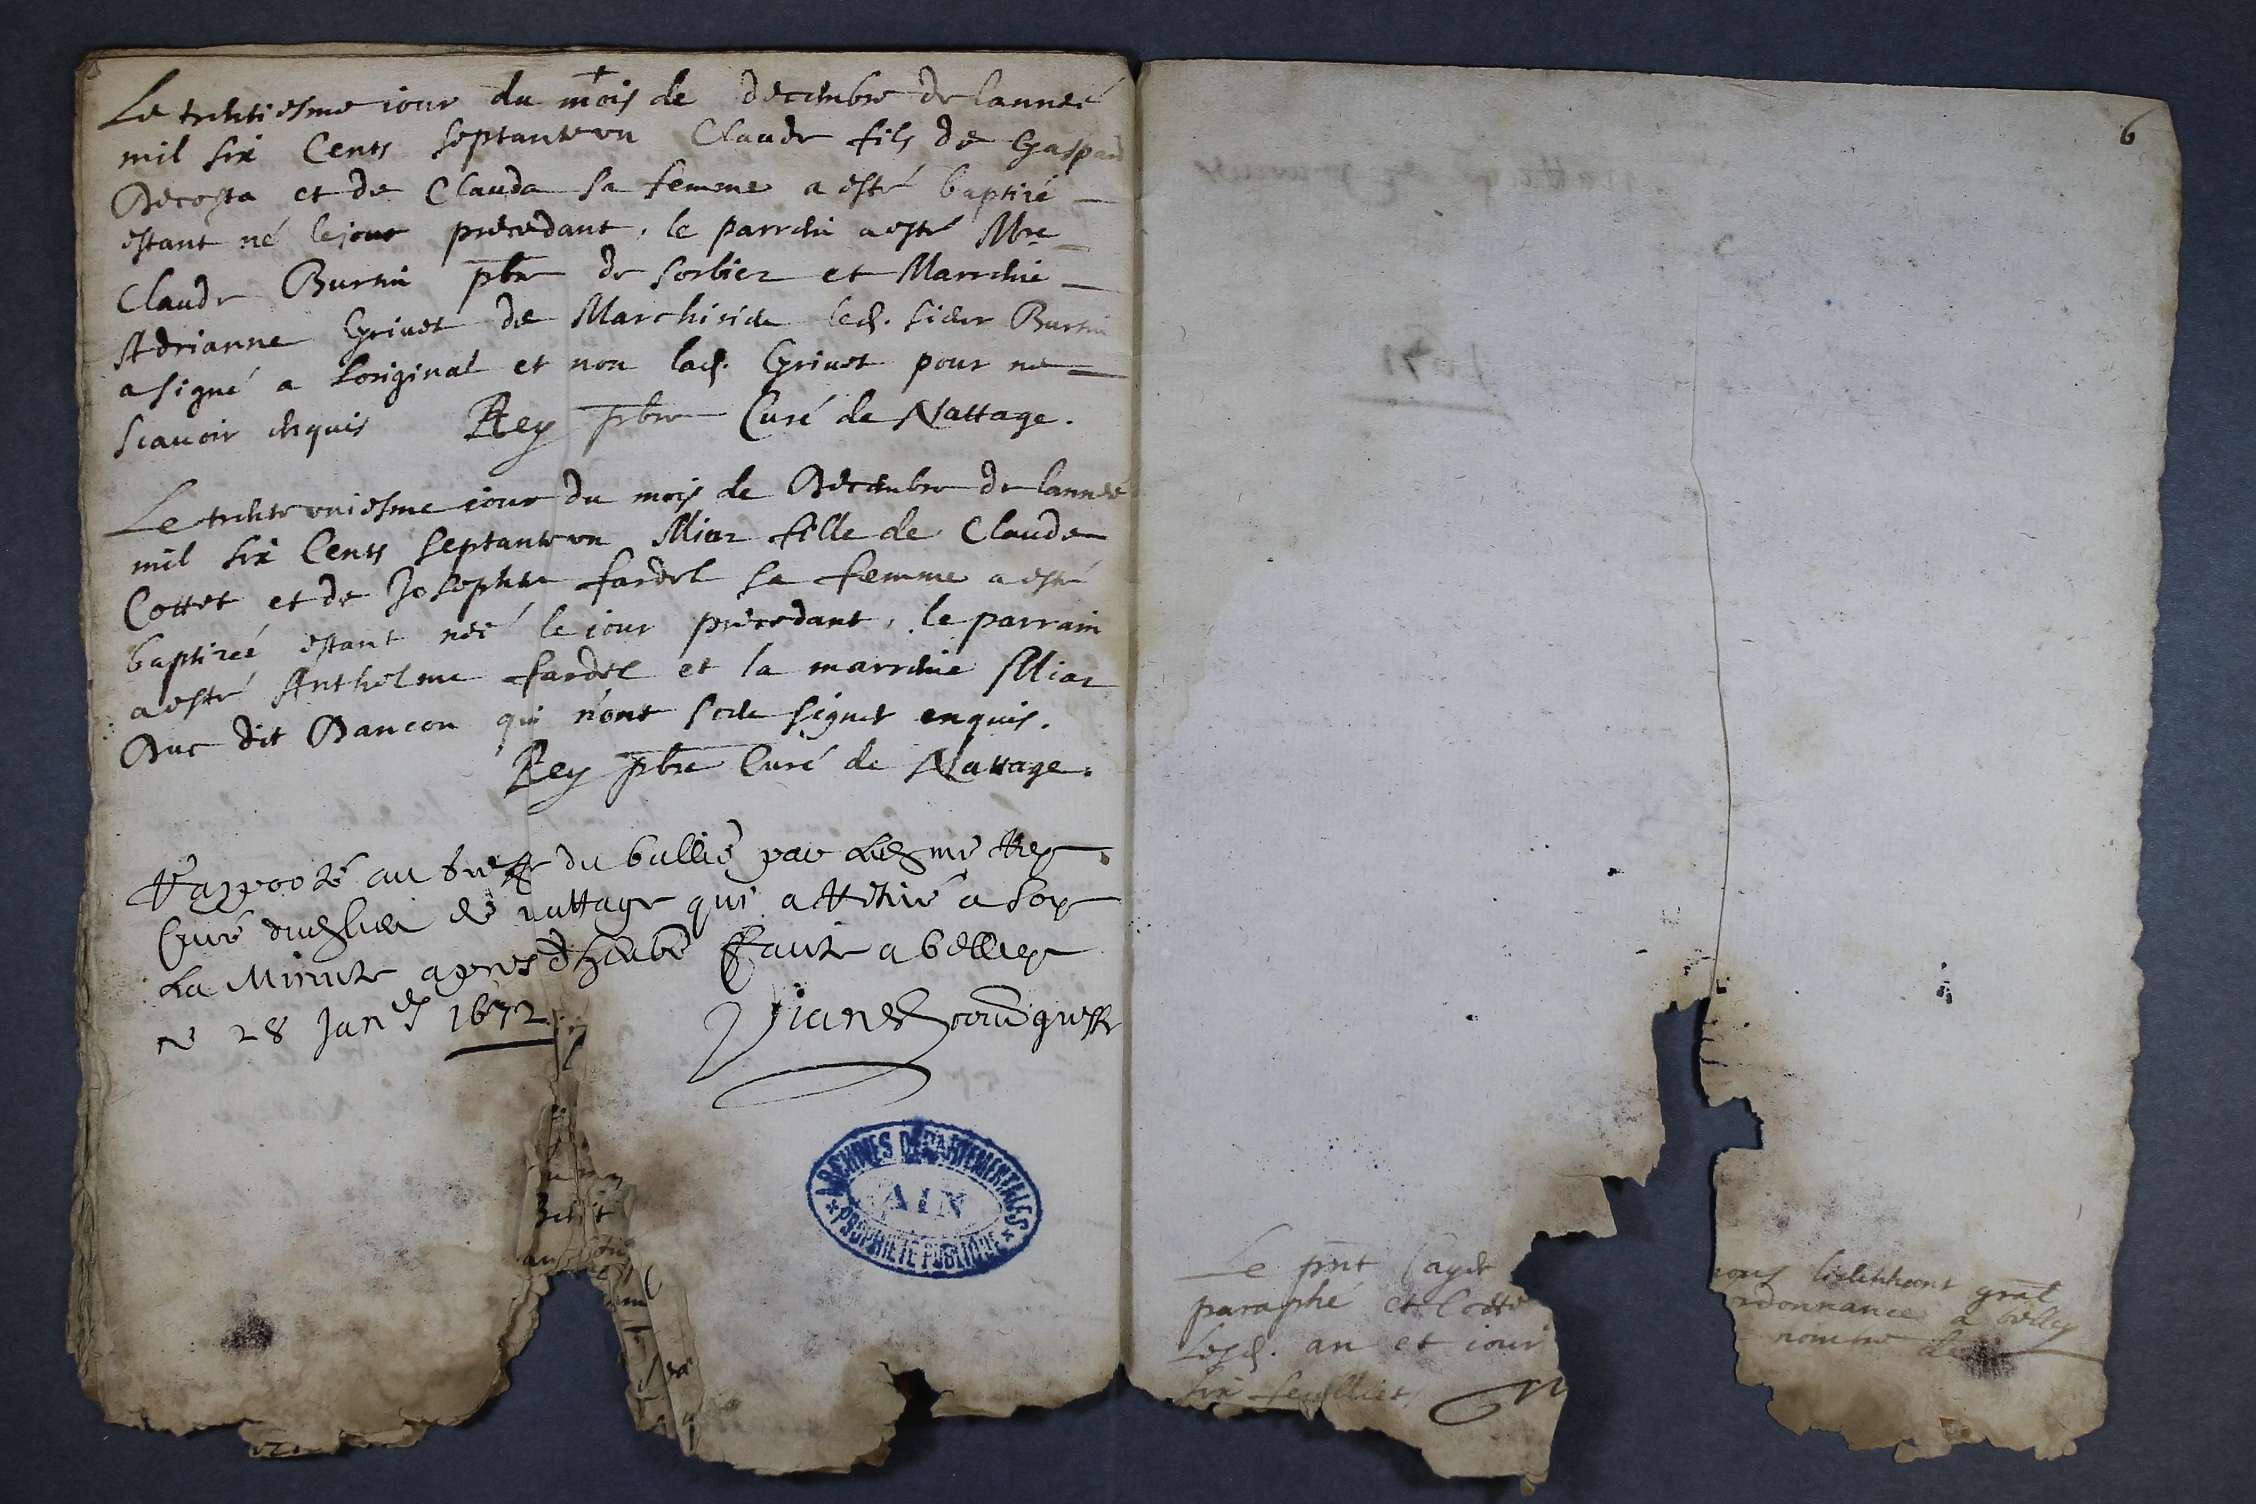 Le trentiesme iour du mois de decembre de lanneé
mil six Cents septante vn Claude fils de Gaspard
Decosta et de Clauda sa femme a esté baptizé
estant né le jour precedant, le parrein a esté Mre
Claude Burtin pbre de sorbier et Marreine
Adrianne Grivet de led. sieur Burtin
a signé a Loriginal et non lad. Grivet pour ne
scavoir enquis Rey pbre Curé de Nattage.
Le trente vniesme iour du mois de Decembre de lanneé
mil six Cents septante vn Mia fille de Claude
Cottet et de Josephte fardel sa femme a esté
baptizeé estant neé le iour precedant, le parrain
a esté Anthelme fardel et la marreine Mia
Duc dit Dancon qui nont sceu signer enquis.
Rey pbre Curé de Nattage.
Rapporté au greffe du par led mre Rey
Curé dud lieu de nattage qui a retiré a soy
La Minute apres faite a belley
ce 28 Janer 1672
greffr
ARCHIVES DÉPARTEMENTALES
AIN
PROPRIÉTÉ PUBLIQUE
6
Le pnt Cayer nous lieutenant gnal
paraphé et Cotté rdonnance a belley
Lesd. an et iour nombre de
six feuilliets